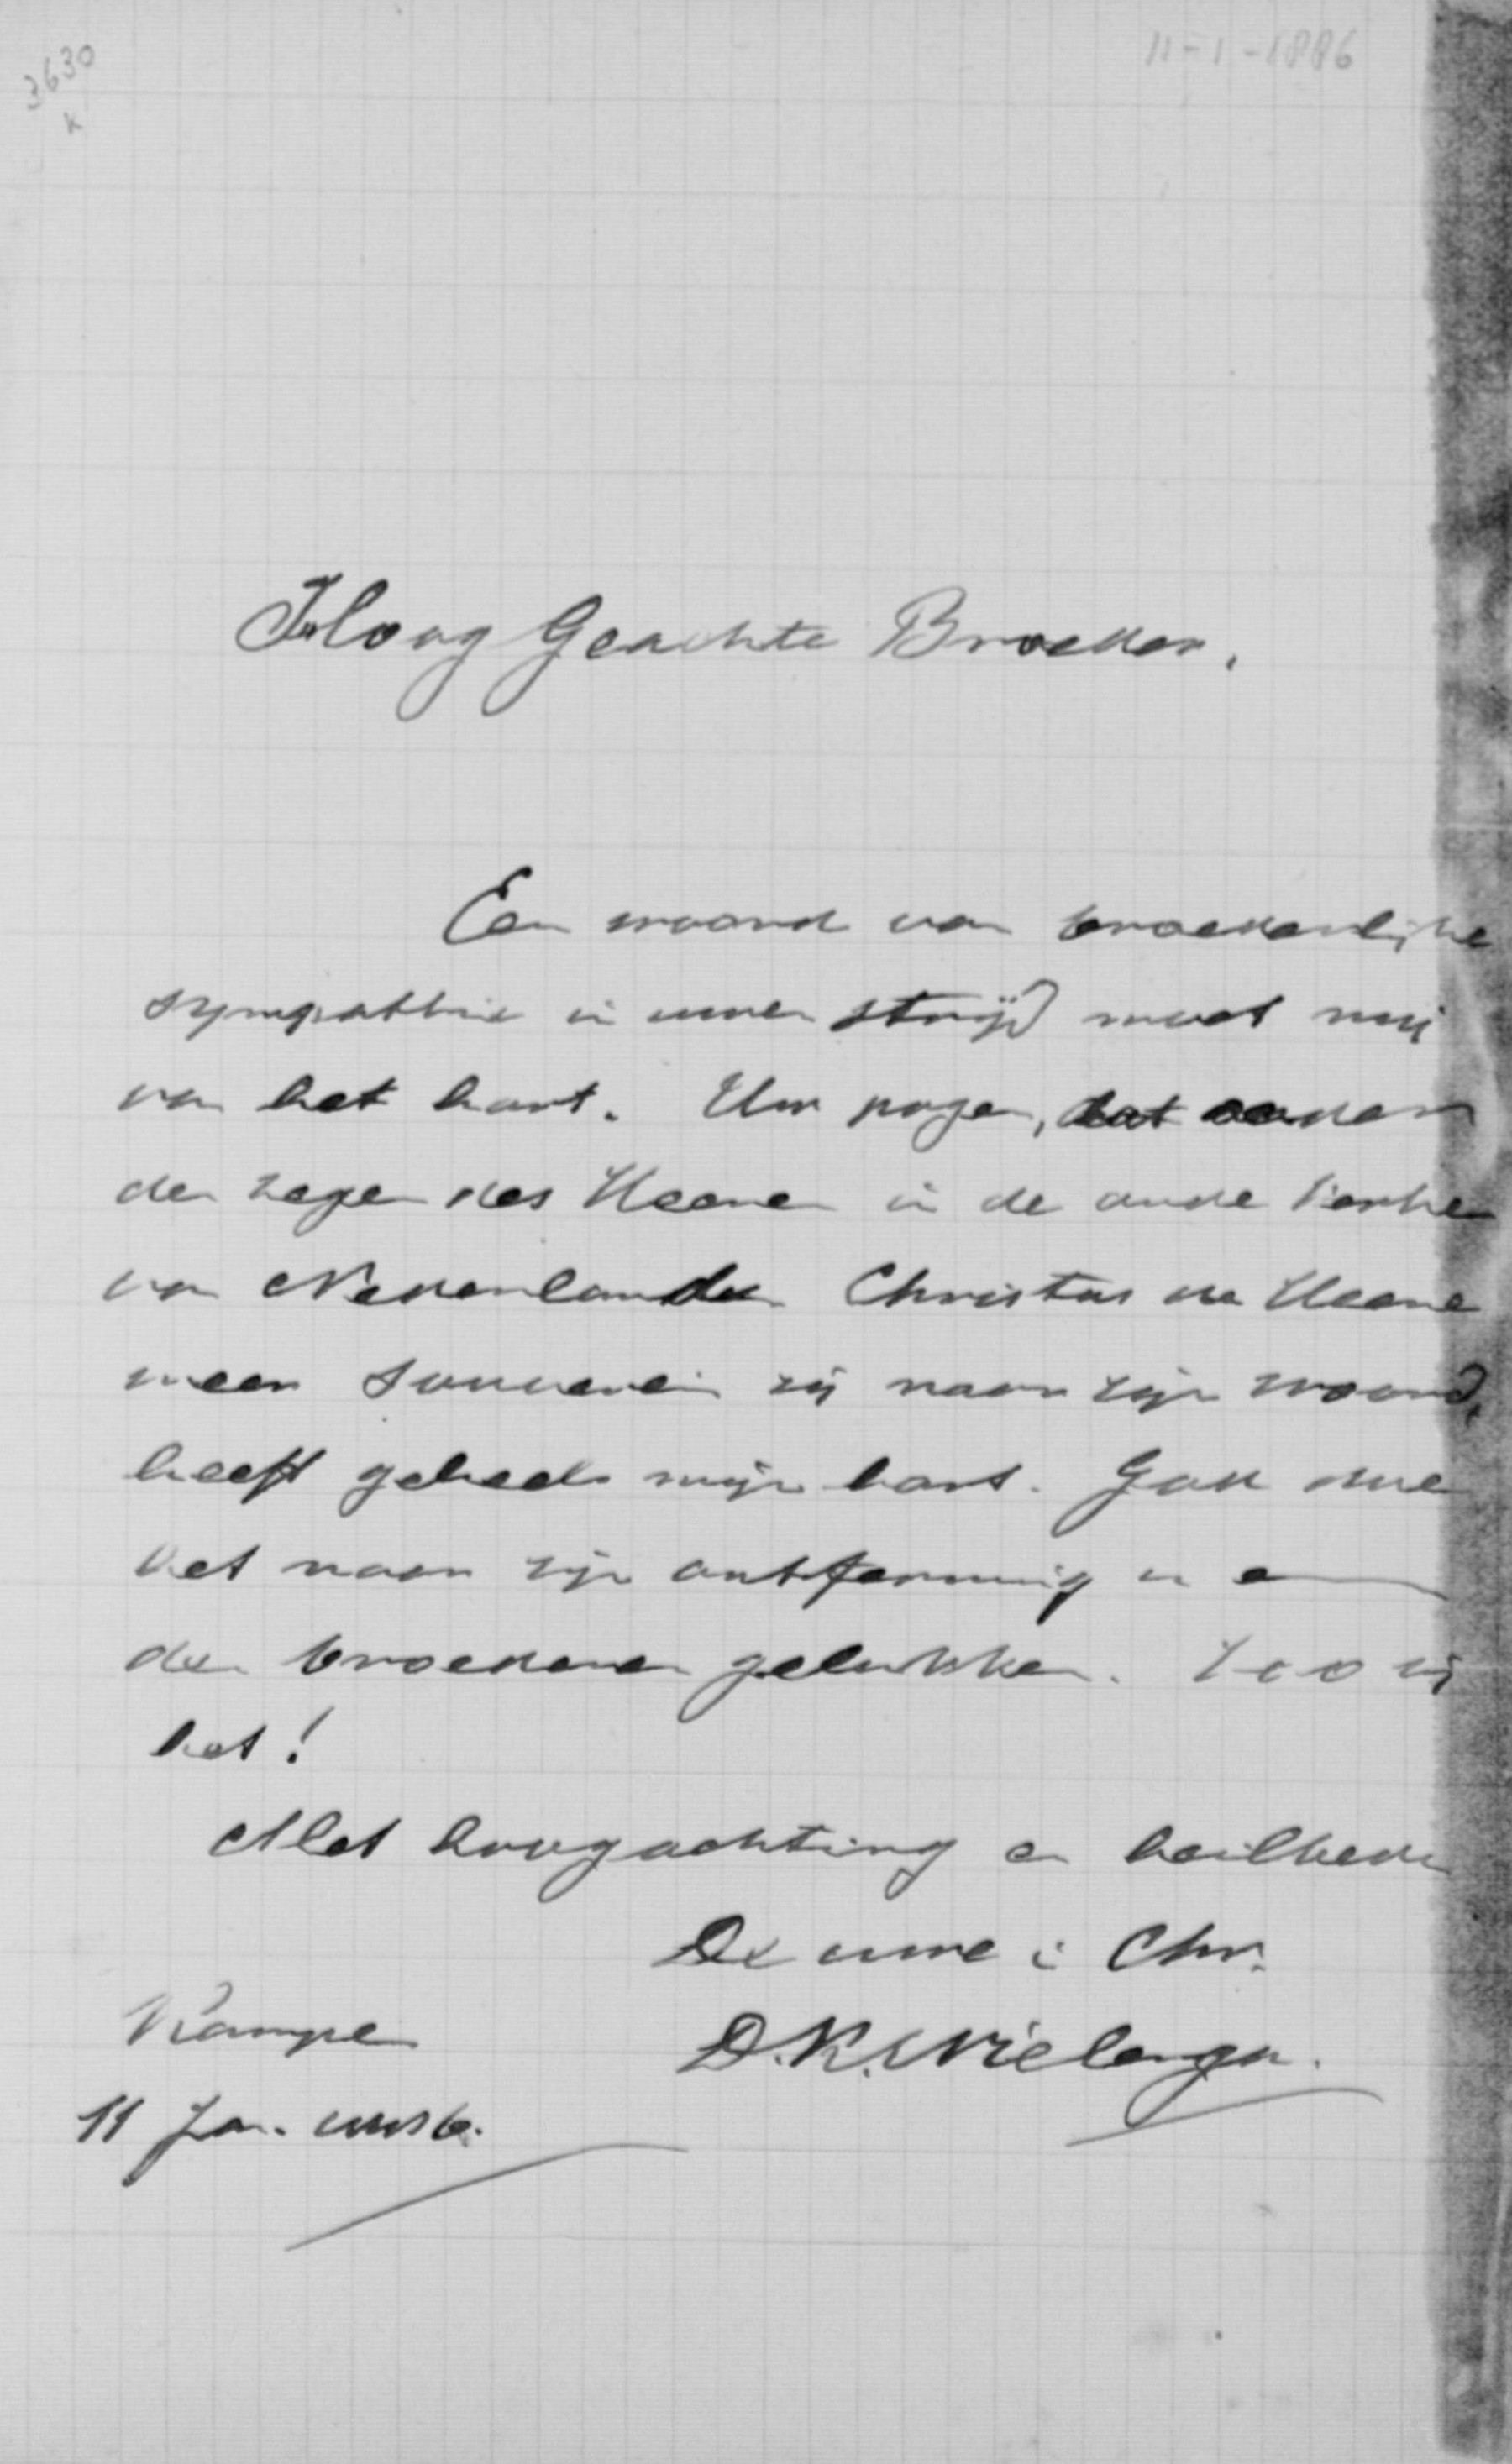 3630
k
11-1-1886
Hoog Geachte Broeder,
Een woord van broederlijke
sympathie in uwen strijd moet mij
van het hart. Uw pogen, dat onder
den zegen des Heeren in de oude kerken
van Nederlanden Christus de Heere
weer souverein zij naar zijn woord,
heeft geheel mijn hart. God doe
het naar zijn ontferming u en
den broederen gelukken. Zoo zij
het!
Met hoogachting en heilbede
De uwe in Chr.
D.K. Wielenga.
Kampen
11 Jan. 1886.